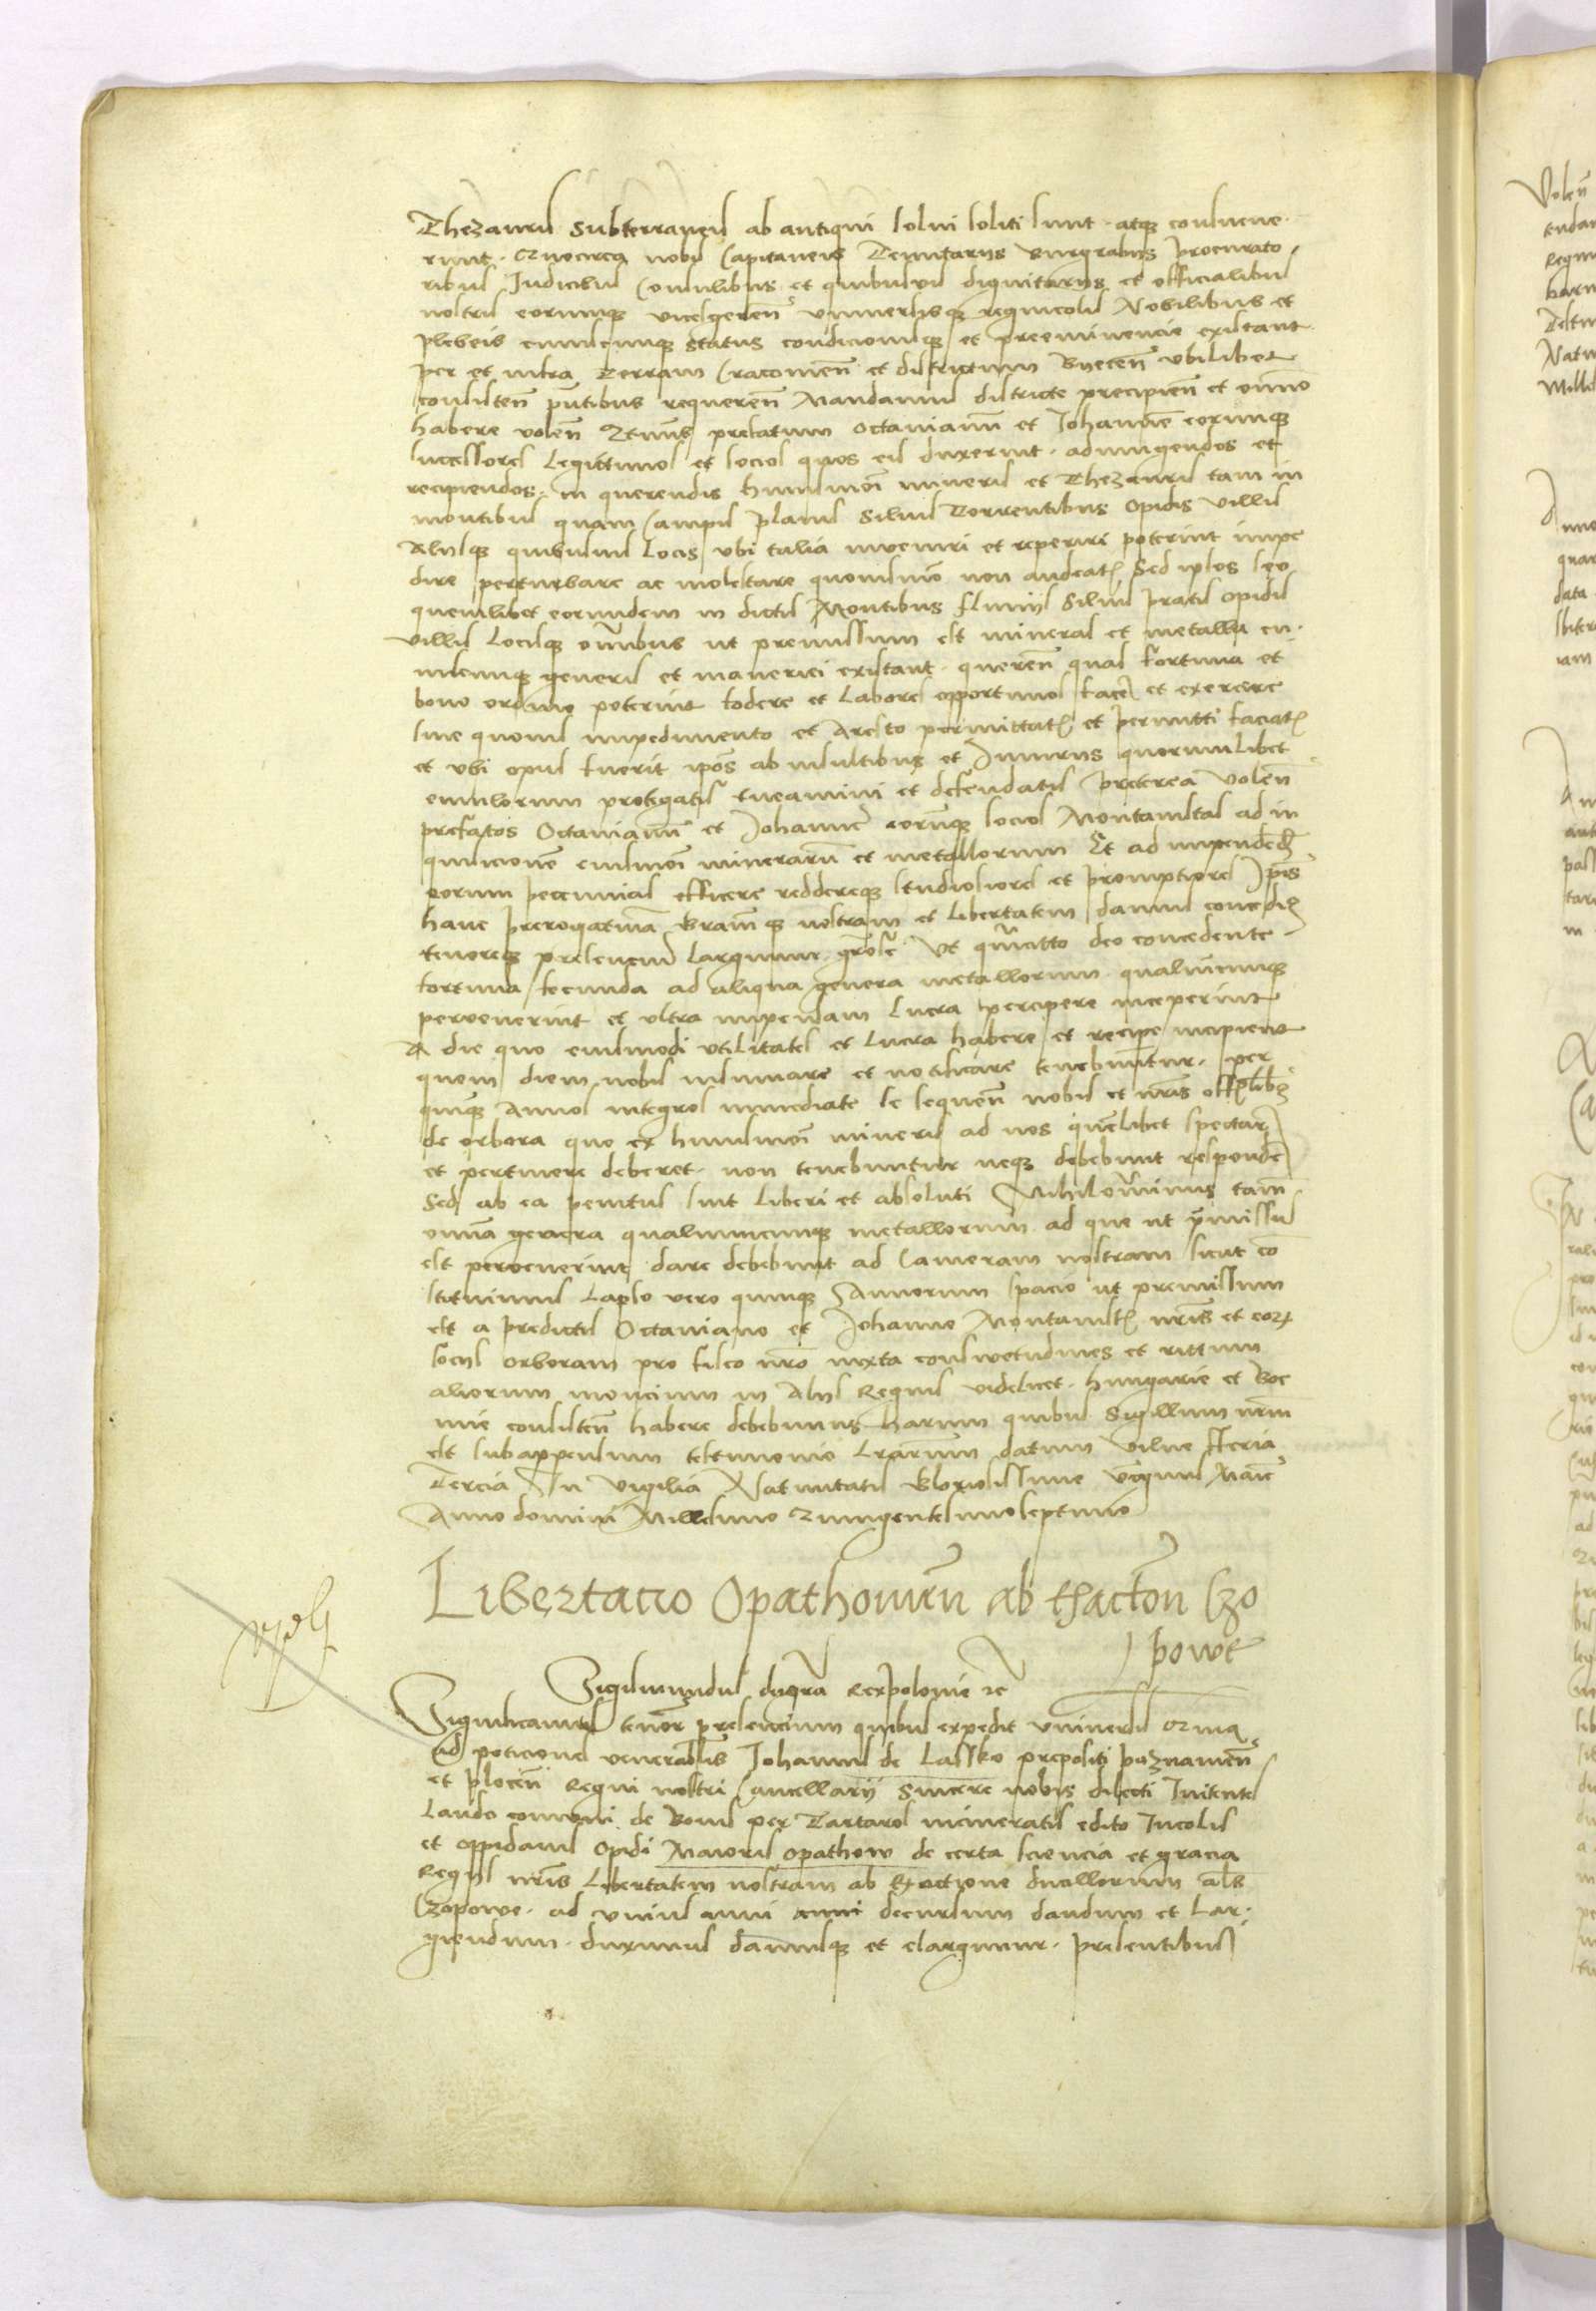 Thezauris subterraneis ab antiqui solui soliti sunt · atq3 consueue
runt · Quocirca vobis Capitaneis Tenutarijs Burgrabijs procurato
ribus Judicibus Consulibus et quibusuis dignitarijs et officialibus
nostris eorumq3 vicesgeren̄ vniuersisq3 regnicolis Nobilibus et
plebeis cuiuscumq3 status condicionisq3 et preeminencie existant
per et intra Terram Cracouien̄ et districtum Byecen̄ vbilibet
consisten̄ pn̄tibus requiren̄ Mandamus districte precipien̄ et om̄no
habere volen̄ prefatum Octauianū et Johannē eorumq3
successores Legittimos et socios quos eis duxerint · adiungendos et
recipiendos · in querendis huiusmōi mineris et Thezauris tam in
montibus quam Campis planis Siluis Torrentibus Opidis villis
Alijsq3 quibusuis Locis vbi talia inueniri et reperiri poterint impe
dire perturbare ac molestare quouismō non audeatis Sed ipsos seo
quemlibet eorundem in dictis Montibus fluuijs Siluis pratis Opidis
villis Locisq3 om̄ibus ut premissum est mineras et metalla cu
iuscumq3 generis et maneriei existant · queren̄ quas fortuna et
bono ordine poterint fodere et Labores opportunos facē et exercere
sine quouis impedimento et Aresto permittatis et permitti faciatis
et vbi opus fuerit ip̄os ab insultibus et Iniurijs quorumlibet
emulorum protegatis tueamini et defendatis Preterea volen̄
prefatos Octauianū et Johannē eorūq3 socios Montanistas ad in
quisicionē eiusmōi minerarū et metallorum Et ad impendēdas
eorum pecunias efficere reddereq3 studiosiores et promptiores Ipis
hanc prerogatiuā Gratiāq3 nostram et libertatem damus concedimus
tenoreq3 presencium Largimur grōse Vt qn̄cūto deo concedente
fortuna secunda ad aliqua genera metallorum · qualiūcumq3
peruenerint et vltra impensam Lucra percipere inceperint
A die quo eiusmodi vtilitates et Lucra habere et recipe incipient
quem diem nobis insinuare et notificare tenebuntur · per
quinq3 Annos integros immediate se sequen̄ nobis et nrīs offlībus
de orbora que ex huiusmōi mineris ad nos qūelibet spectare
et pertinere deberet · non tenebuntur neq3 debebunt respondē
Sed ab ea penitus sint Liberi et absoluti Nihilominus tam̄
omīa genera qualiumcumq3 metallorum ad que ut p̄missū
est peruenerint dare debebunt ad Cameram nostram sicut co
stituimus Lapso vero quinq3 Annorum spacio ut premissum
est a predictis Octauiano et Johanne Montanistis nrīs et eor
socijs orboram pro fisco nrō iuxta conswetudines et rittum
aliorum moncium in Alijs Regnis videlicet · hungarie et Boe
mie consisten̄ habere debebimus harum quibus Sigillum nrm̄
est subappensum testimonio Lrārum datum Vilne feria
Tercia In Vigilia Natiuitatis Gloriosissime virginis Marie
Anno domini Millesimo Quingentesimoseptimo
Libertacio Opathouien̄ ab exacton̄ Czo
powe
Sigismundus dei grā Rex polonie etc̄
Significamus tenor̄ presencium quibus expedit vniuersis Quia
ad peticionē venerabilis Johannis de Lassko prepositi poznanien̄
et plocen̄ Regni nostri Cancellarij Sincere nobis dilecti Initente
Laudo conuoni de Bonis per Tartaros incineratis edito Incolis
et oppidanis Opidi Maioris Opathow de certa sciencia et gracia
Regijs nrīs Libertatem nostram ab Exactione ducillorum al̄s
Czopowe · ad vnius anni anni decursum dandum et Lar
giendum · duximus damusq3 et elargimur · presentibus